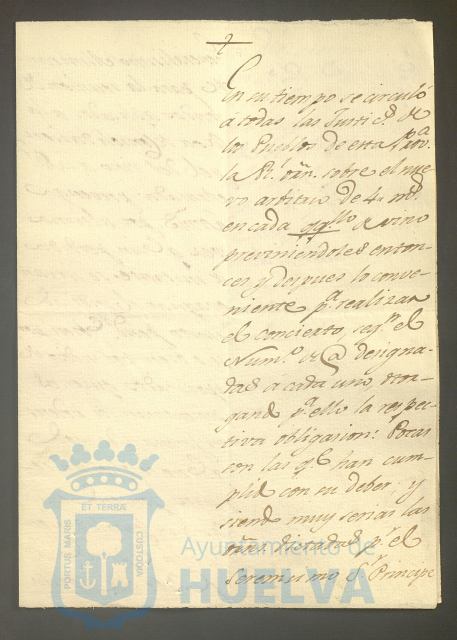 En su tiempo se circuló
a todas las Justic.s de
los Pueblos de esta Prov.a
la Rl. orn. sobre el nue-
vo arbitrio de 4 mrs.
en cada qq.llo de vino
previniendoles enton-
ces y despues lo conve-
niente p.a realizar
el concierto, seg.n el
Num.o de @ designa-
das a cada uno, otor-
gando p.a ello la respec-
tiva obligasion: Pocas
son las q.e han cum-
plido con su deber y
siendo muy serias las
orns. dictadas p.r el
Seremisimo S.r Principe
PORTUS MARIS
ET TERRÆ
CUSTODIA
Ayuntamiento de
HUELVA